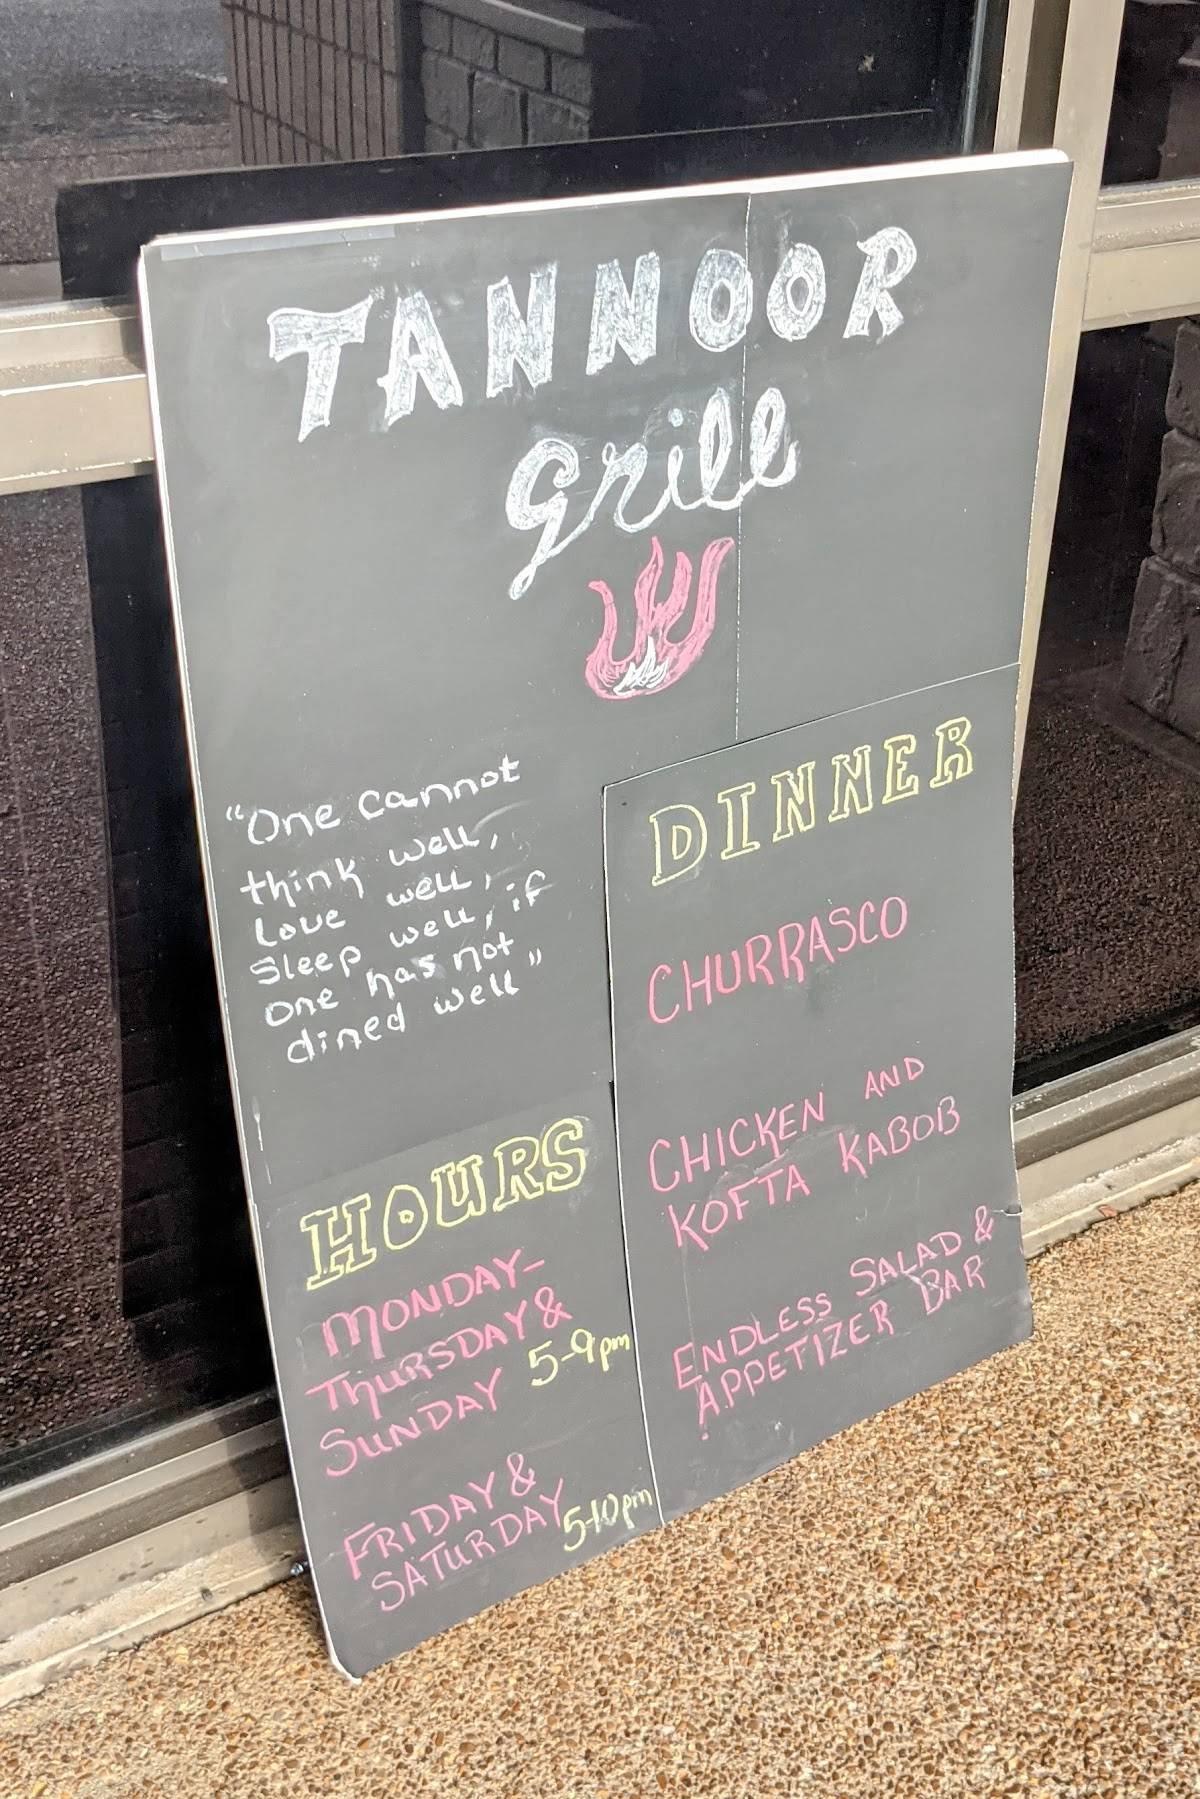 TANNOOR
Grill
"One cannot
think well,
love well,
sleep well, if
one has not
dined well"
HOURS
MONDAY-
THURSDAY &
SUNDAY 5-9pm
FRIDAY &
SATURDAY 5-10pm
DINNER
CHURRASCO
CHICKEN AND
KOFTA KABOB
ENDLESS SALAD &
APPETIZER BAR